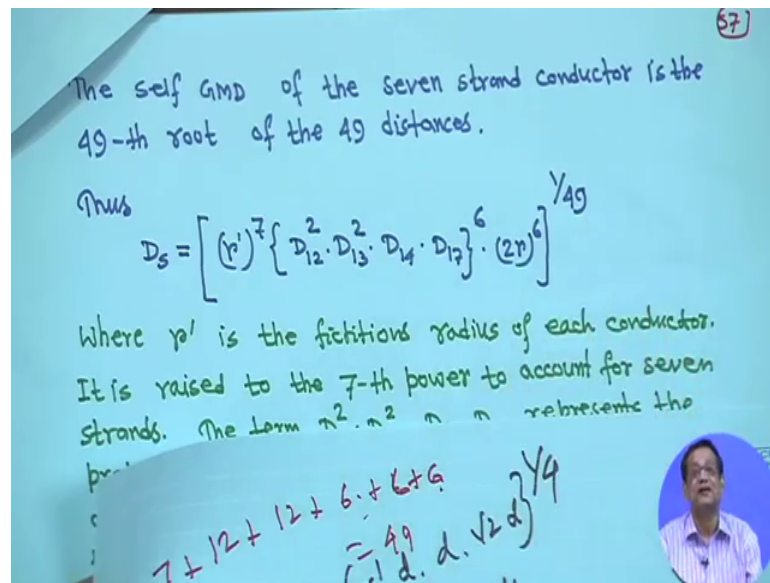 57
The self GMD of the seven strand conductor is the
49-th root of the 49 distances.
Thus
D_s = [(r')^7 {D_12^2 · D_13^2 · D_14 · D_17}^6 · (2r)^6]^1/49
Where r' is the fictitious radius of each conductor.
It is raised to the 7-th power to account for seven
strands. The term represents the
7 + 12 + 12 + 6 + 6 + 6
= 49
d. d. √2 d}^1/4